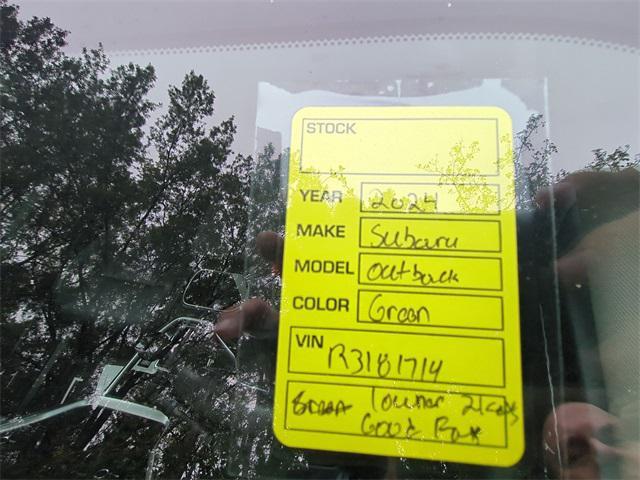 STOCK
YEAR 2024
MAKE Subaru
MODEL Outback
COLOR Green
VIN R3181714
1owner 2keys
Good